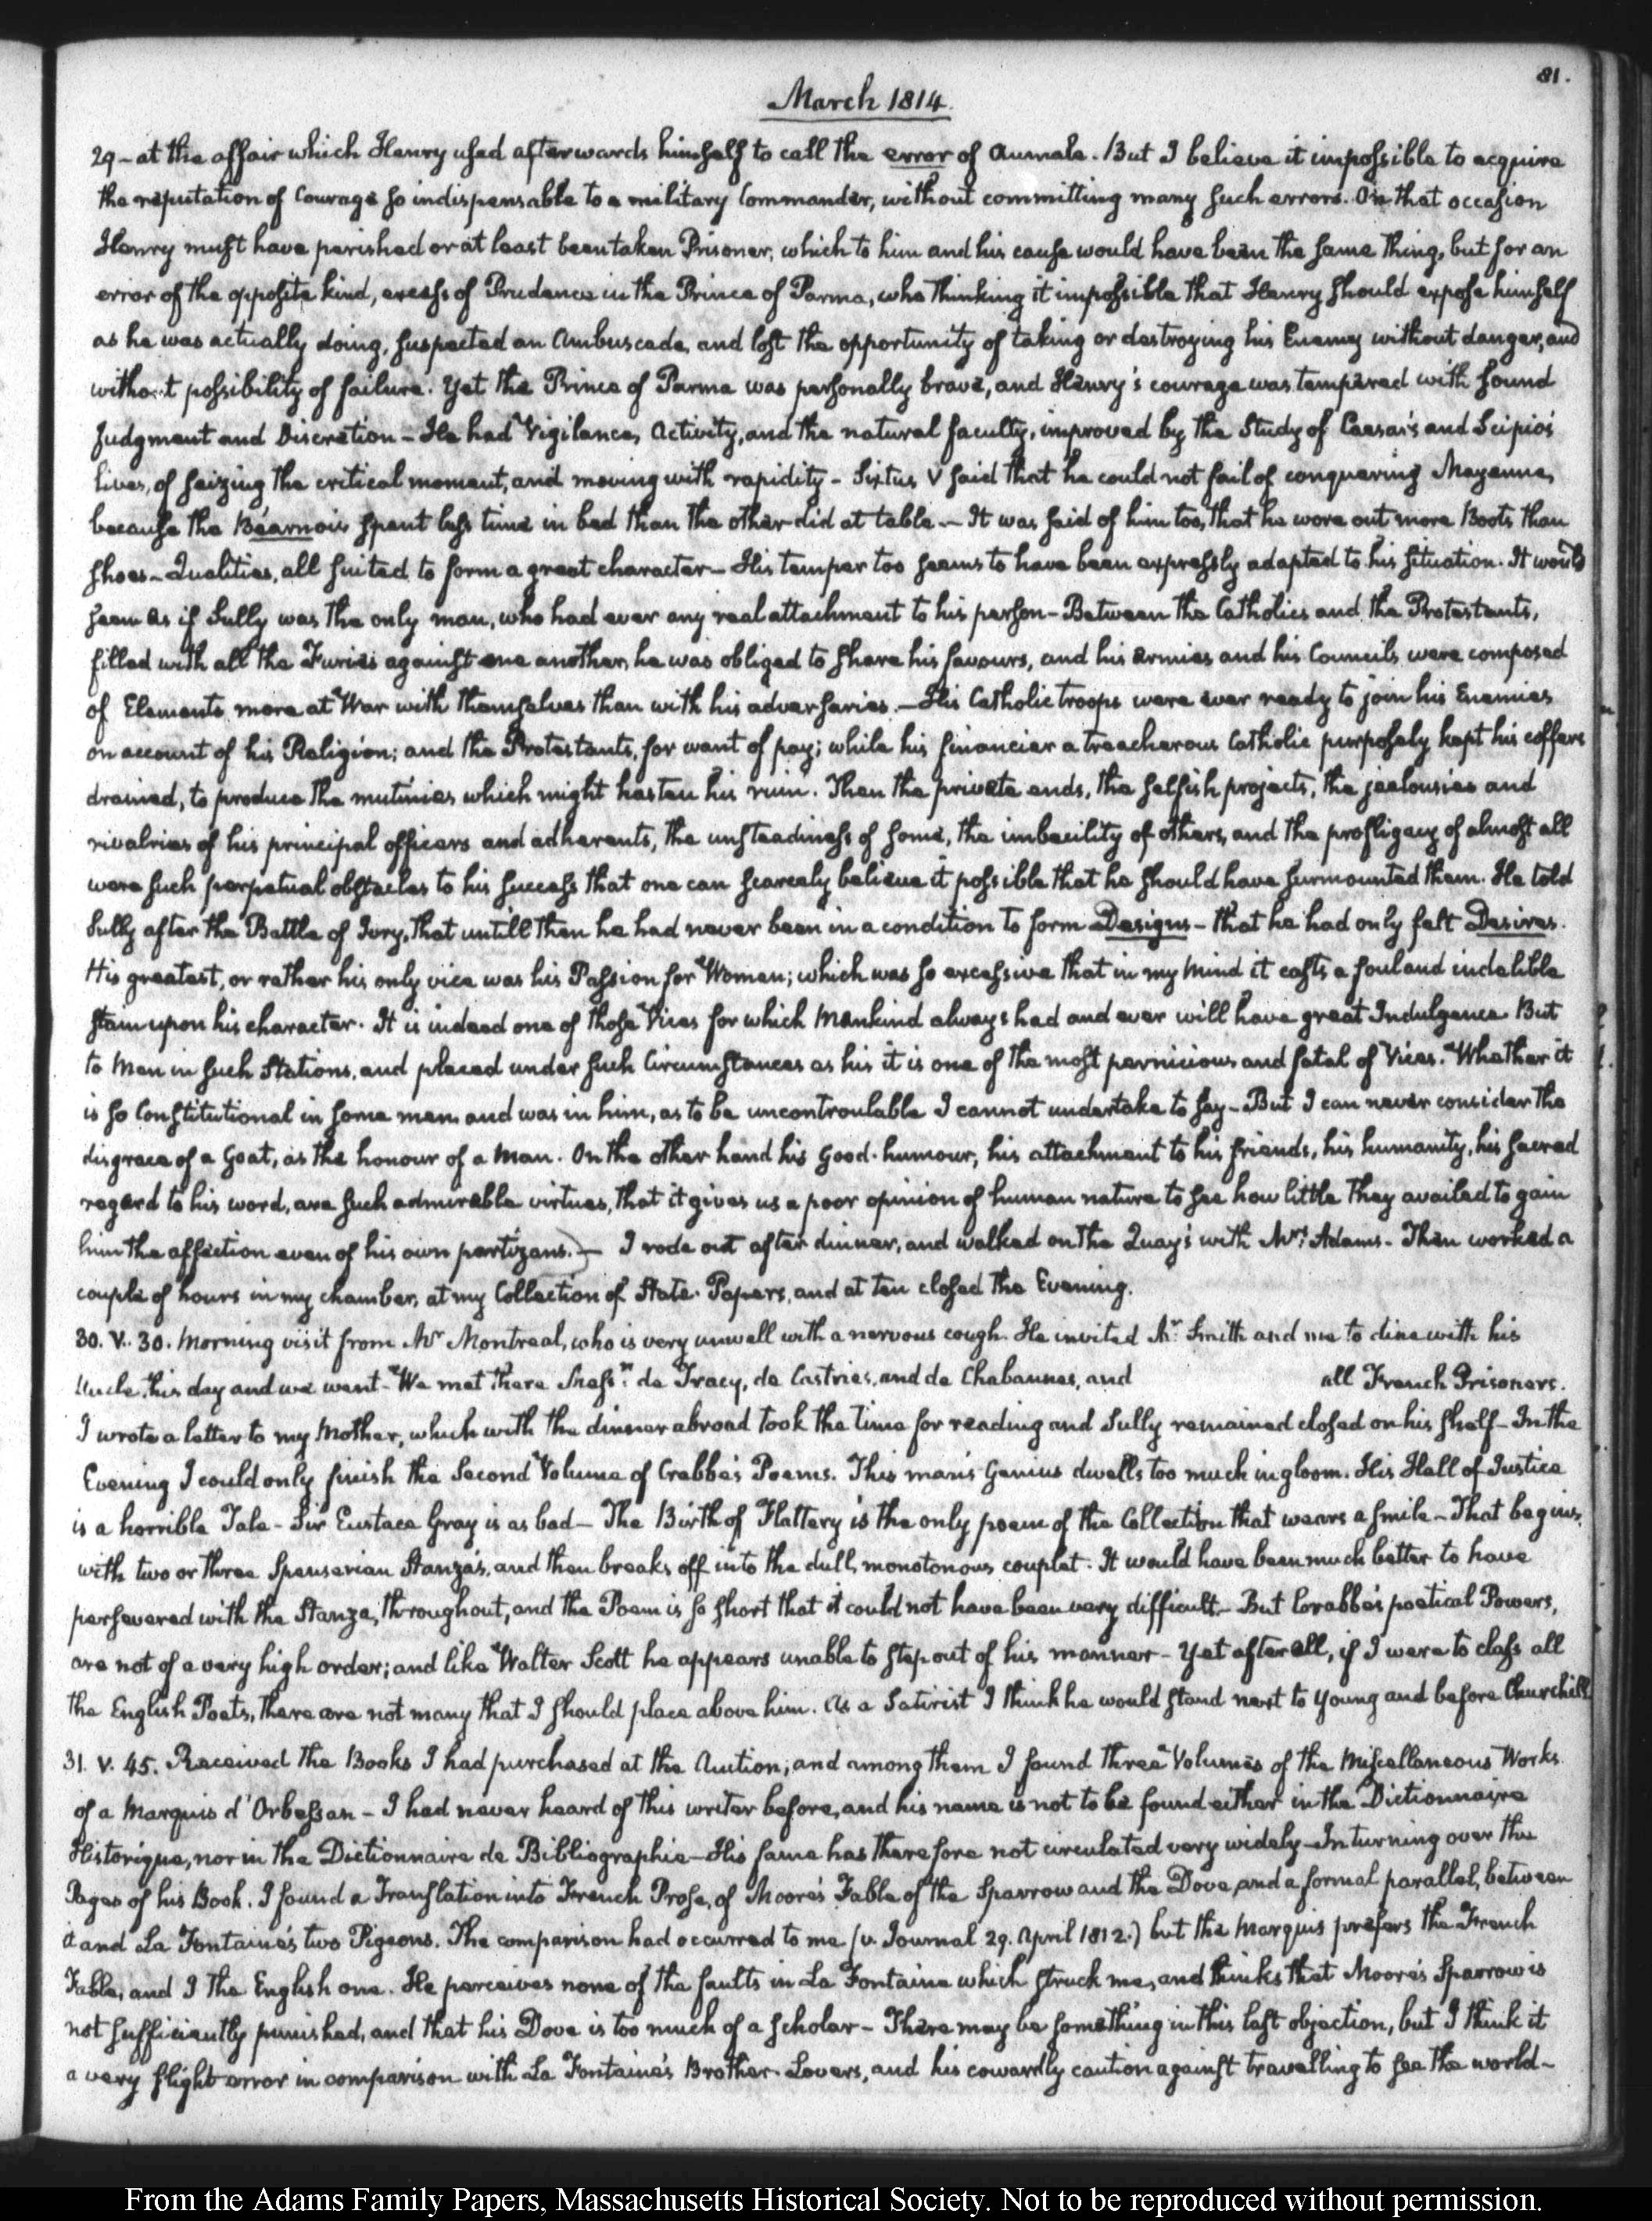 81.
March 1814.
29 – at the affair which Henry used afterwards himself to call the error of Aumale. But I believe it impossible to acquire
the reputation of Courage so indispensable to a military Commander, without committing many such errors. On that occasion
Henry must have perished or at least been taken Prisoner, which to him and his cause would have been the same thing, but for an
error of the opposite kind, excess of Prudence in the Prince of Parma, who thinking it impossible that Henry should expose himself
as he was actually doing, suspected an Ambuscade, and lost the opportunity of taking or destroying his Enemy without danger, and
without possibility of failure. Yet the Prince of Parma was personally brave, and Henry's courage was tempered with sound
Judgment and Discretion – He had Vigilance, Activity, and the natural faculty, improved by the Study of Caesar's and Scipio's
lives, of seizing the critical moment, and moving with rapidity – Sixtus V said that he could not fail of conquering Mayenne,
because the Béarnois spent less time in bed than the other did at table. – It was said of him too, that he wore out more Boots than
shoes – Qualities, all suited to form a great character – His temper too seems to have been expressly adapted to his situation. It would
seem as if Sully was the only man, who had ever any real attachment to his person – Between the Catholics and the Protestants,
filled with all the Furies against one another, he was obliged to share his favours, and his armies and his Councils were composed
of Elements more at War with themselves than with his adversaries. – His Catholic troops were ever ready to join his Enemies
on account of his Religion; and the Protestants, for want of pay; while his financier a treacherous Catholic purposely kept his coffers
drained, to produce the mutinies which might hasten his ruin. Then the private ends, the selfish projects, the jealousies and
rivalries of his principal officers and adherents, the unsteadiness of some, the imbecility of others, and the profligacy of almost all
were such perpetual obstacles to his success that one can scarcely believe it possible that he should have surmounted them. He told
Sully after the Battle of Ivry, that untill then he had never been in a condition to form Designs – that he had only felt Desires.
His greatest, or rather his only vice was his Passion for Women; which was so excessive that in my mind it casts a foul and indelible
stain upon his character. It is indeed one of those Vices for which Mankind always had and ever will have great Indulgence. But
to Men in such Stations, and placed under such Circumstances as his it is one of the most pernicious and fatal of Vices. Whether it
is so Constitutional in some men and was in him, as to be uncontroulable I cannot undertake to say – But I can never consider the
disgrace of a Goat, as the honour of a Man. On the other hand his Good-humour, his attachment to his friends, his humanity, his sacred
regard to his word, are such admirable virtues, that it gives us a poor opinion of human nature to see how little they availed to gain
him the affection even of his own partizans.) – I rode out after dinner, and walked on the Quay's with Mrs. Adams. Then worked a
couple of hours in my chamber, at my Collection of State-Papers, and at ten closed the Evening.
30. V. 30. Morning visit from Mr Montreal, who is very unwell with a nervous cough. He invited Mr. Smith and me to dine with his
Uncle, this day and we went – We met there Messrs. de Tracy, de Castries, and de Chabannes, and all French Prisoners.
I wrote a letter to my Mother, which with the dinner abroad took the time for reading and Sully remained closed on his shelf – In the
Evening I could only finish the Second Volume of Crabbe's Poems. This man's Genius dwells too much in gloom. His Hall of Justice
is a horrible Tale – Sir Eustace Gray is as bad – The Birth of Flattery is the only poem of the Collection that wears a smile – That begins,
with two or three Spenserian Stanza's, and then breaks off into the dull, monotonous couplet. It would have been much better to have
persevered with the Stanza, throughout, and the Poem is so short that it could not have been very difficult. – But Crabbe's poetical Powers,
are not of a very high order; and like Walter Scott he appears unable to step out of his manner – Yet after all, if I were to class all
the English Poets, there are not many that I should place above him. As a Satirist I think he would stand next to Young and before Churchill.
31. V. 45. Received the Books I had purchased at the Auction; and among them I found three Volumes of the Miscellaneous Works
of a Marquis d'Orbessan – I had never heard of this writer before, and his name is not to be found either in the Dictionnaire
Historique, nor in the Dictionnaire de Bibliographie – His fame has therefore not circulated very widely – In turning over the
Pages of his Book, I found a Translation into French Prose, of Moore's Fable of the Sparrow and the Dove, and a formal parallel, between
it and La Fontaine's two Pigeons. The comparison had occurred to me (v. Journal 29. April 1812.) but the Marquis prefers the French
Fable, and I the English one. He perceives none of the faults in La Fontaine which struck me, and thinks that Moore's Sparrow is
not sufficiently punished, and that his Dove is too much of a scholar – There may be something in this last objection, but I think it
a very slight error in comparison with La Fontaine's Brother-Lovers, and his cowardly caution against travelling to see the world –
From the Adams Family Papers, Massachusetts Historical Society. Not to be reproduced without permission.